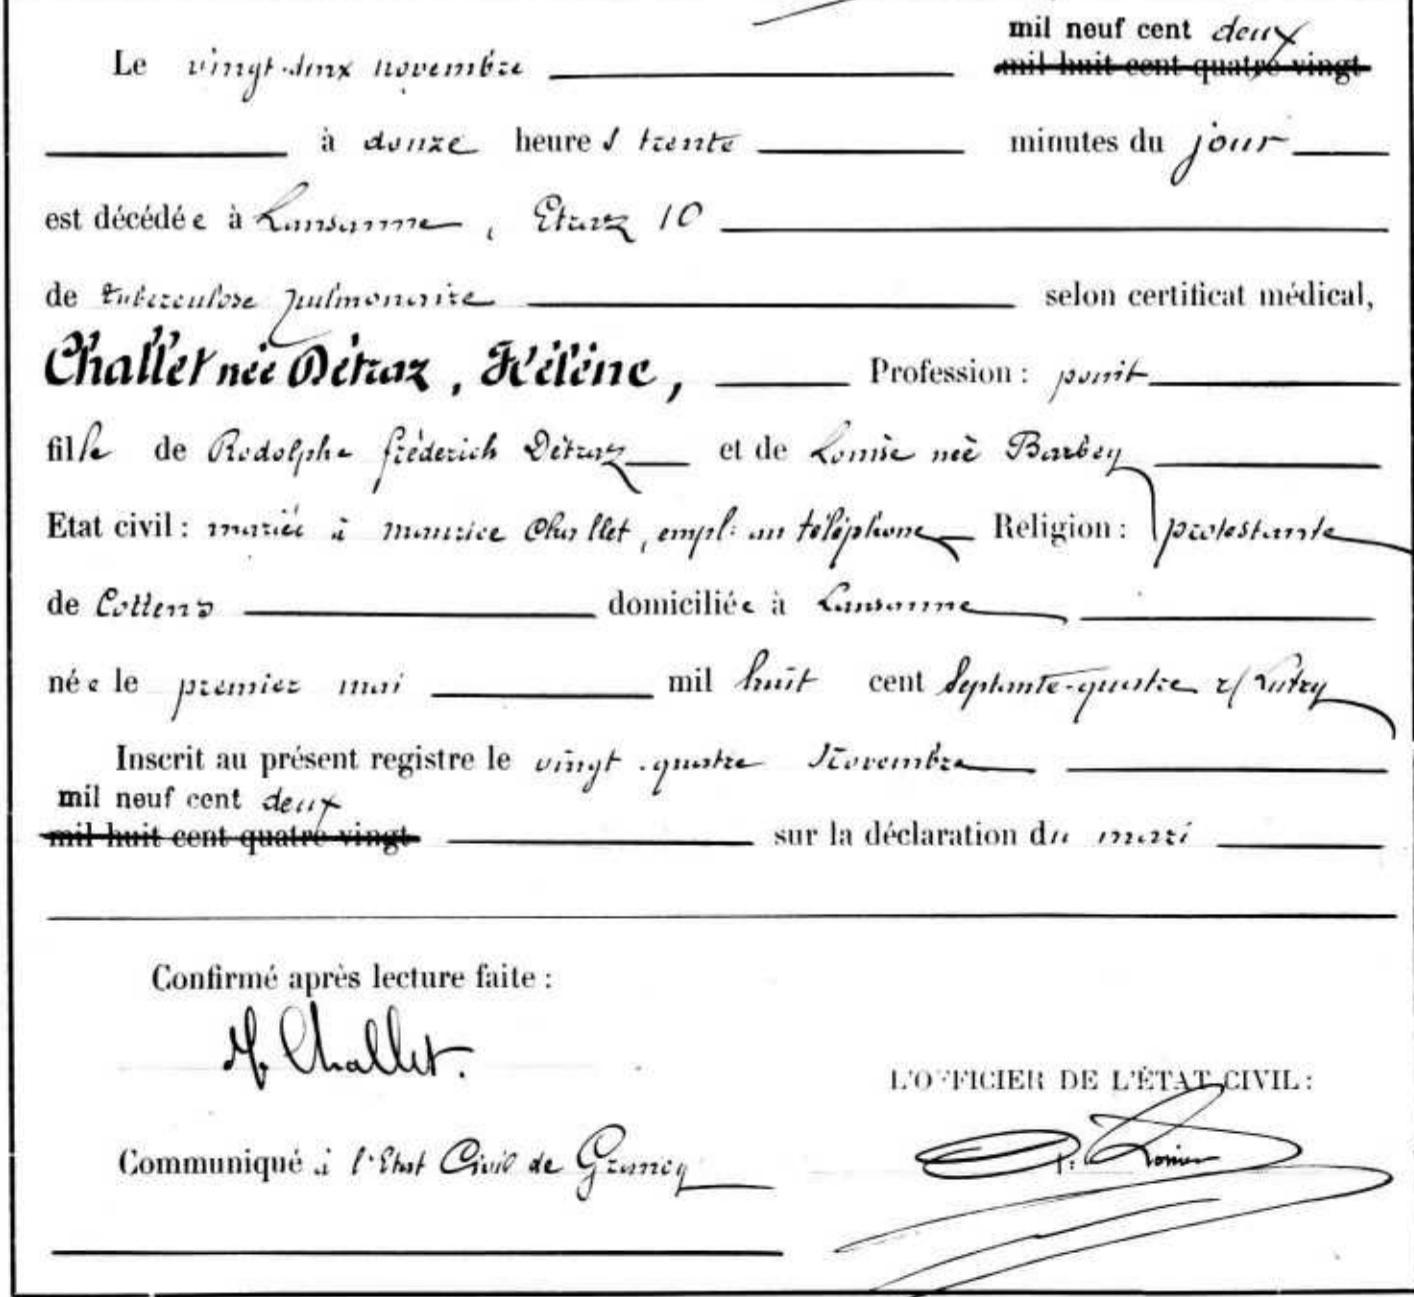 mil neuf cent deux
Le vingt-deux novembre mil huit cent quatre-vingt
à douze heures trente minutes du jour
est décédée à Lausanne, Etraz 10
de tuberculose pulmonaire selon certificat médical,
Challet née Détraz, Hélène, Profession: point
fille de Rodolphe fréderich Détraz et de Louise née Barbey
Etat civil: mariée à maurice Challet, empl: au téléphone Religion: protestante
de Cottens domiciliée à Lausanne
née le premier mai mil huit cent Septante-quatre r/ Lutry
Inscrit au présent registre le vingt-quatre Novembre
mil neuf cent deux
mil huit cent quatre-vingt sur la déclaration du mari
Confirmé après lecture faite:
M Challet.
L'OFFICIER DE L'ÉTAT CIVIL:
Communiqué à l'Etat Civil de Grancy